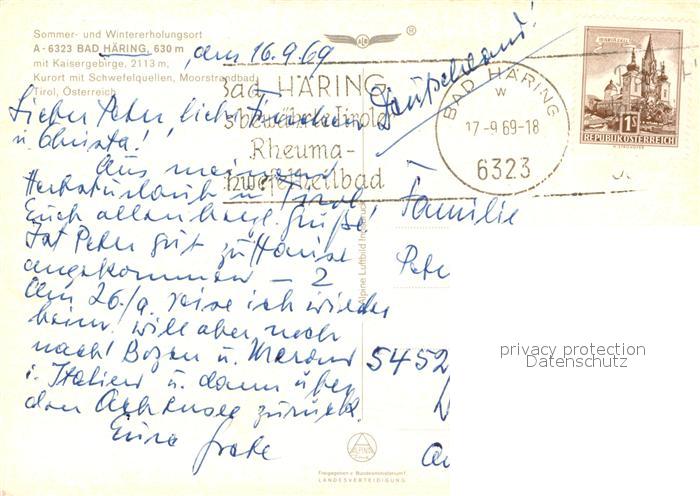 Sommer- und Wintererholungsort
A - 6323 BAD HÄRING, 630 m
mit Kaisergebirge, 2113 m,
Kurort mit Schwefelquellen, Moorstrandbad,
Tirol, Österreich
®
, am 16.9.69
Deutschland!
Bad HÄRING
bewährte Tiroler
Rheuma-
hwefelheilbad
BAD HÄRING
w
17-9 69-18
6323
MARIAZELL
1S
REPUBLIK ÖSTERREICH
Lieber Peter, liebe
u. Christa!
Aus meinem
Herbsturlaub in Tirol
Euch allen herzl. Grüße!
Ist Peter gut zu Hause
angekommen – ?
Am 26./9. reise ich wieder
heim, will aber noch
nach Bozen u. Meran
i. Italien u. dann über
den Achensee zurück.
Eure Grete
Familie
Pete
5452
Alpine Luftbild Innsbruck
ALPINE
Freigegeben v. Bundesministerium f.
LANDESVERTEIDIGUNG
privacy protection
Datenschutz